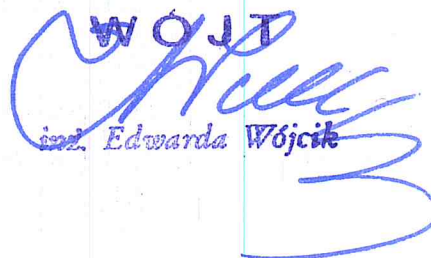 WÓJT
inż. Edwarda Wójcik